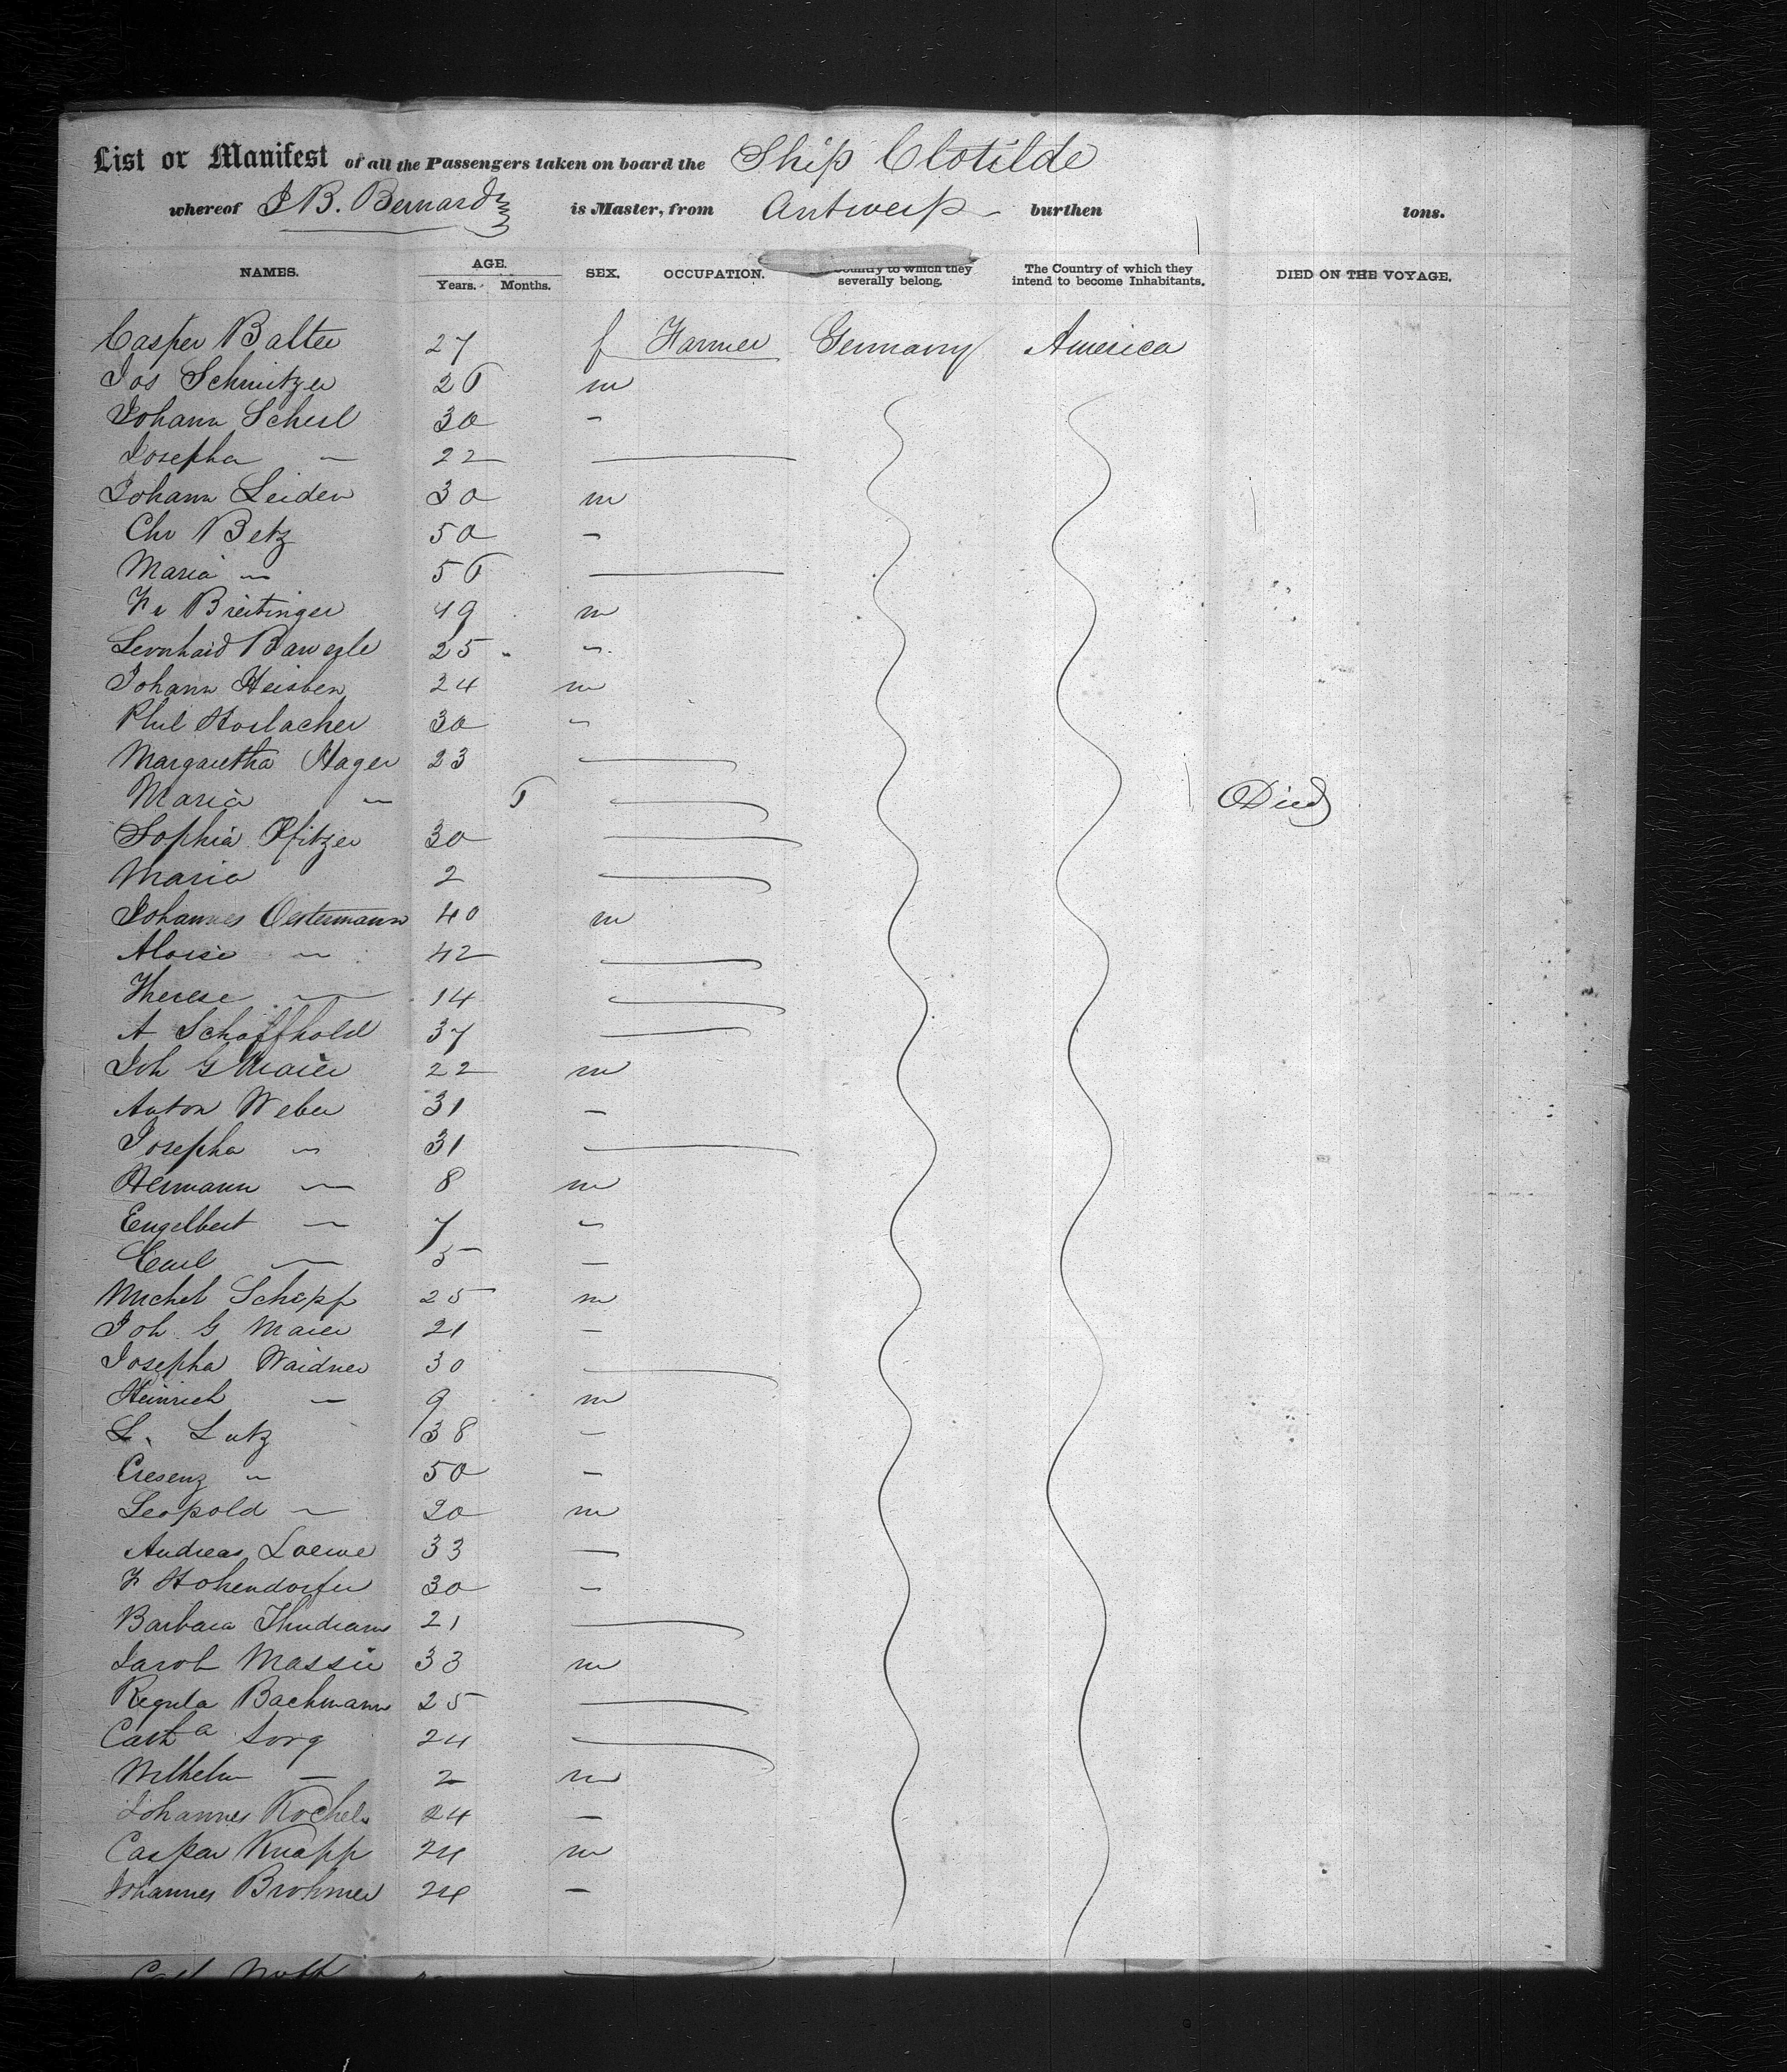 List or Manifest of all the Passengers taken on board the Ship Clotilde
whereof J B. Bernard is Master, from Antwerp burthen tons.
NAMES. AGE. Years. Months. SEX. OCCUPATION. Country to which they severally belong. The Country of which they intend to become Inhabitants. DIED ON THE VOYAGE.
Casper Balter 27 f Farmer Germany America
Jos Schnitzer 26 m
Johann Scherl 30 —
Josepha — 22
Johann Leiden 30 m
Chr Betz 50 —
Maria — 56
Fr Breitinger 49 m
Leonhard 25 —
Johann 24 m
Phil Horlacher 30 —
Margaretha Hager 23
Maria — 6 Died
Sophia Pfitzer 30
Maria 2
Johannes Oestermann 40 m
Aloise — 42
Therese — 14
A Schaffhold 37
Joh G Maier 22 m
Anton Weber 31 —
Josepha — 31
Hermann — 8 m
Engelbert — 7 —
Carl — 5 —
Michel Schepp 25 m
Joh G Maier 21 —
Josepha Waidner 30
Heinrich — 9 m
L. Lutz 38 —
Cresenz — 50 —
Leopold — 20 m
Andreas Loewe 33 —
F Hohendorfer 30 —
Barbara 21
Jacob Massie 33 m
Regula Bachmann 25
Cath a Sorg 24
Wilhelm — 2 m
Johannes Kochel 24 —
Casper Knapp 24 m
Johannes Brohmer 24 —